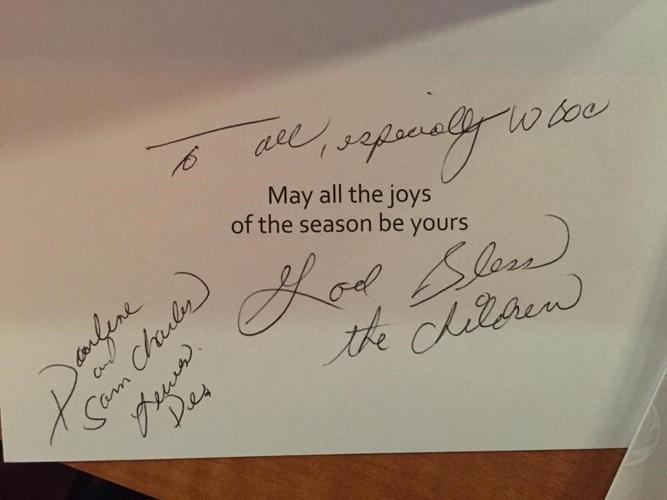 To all, especially WDOC
May all the joys
of the season be yours
God Bless
the children
Darlene
and
Sam Charles